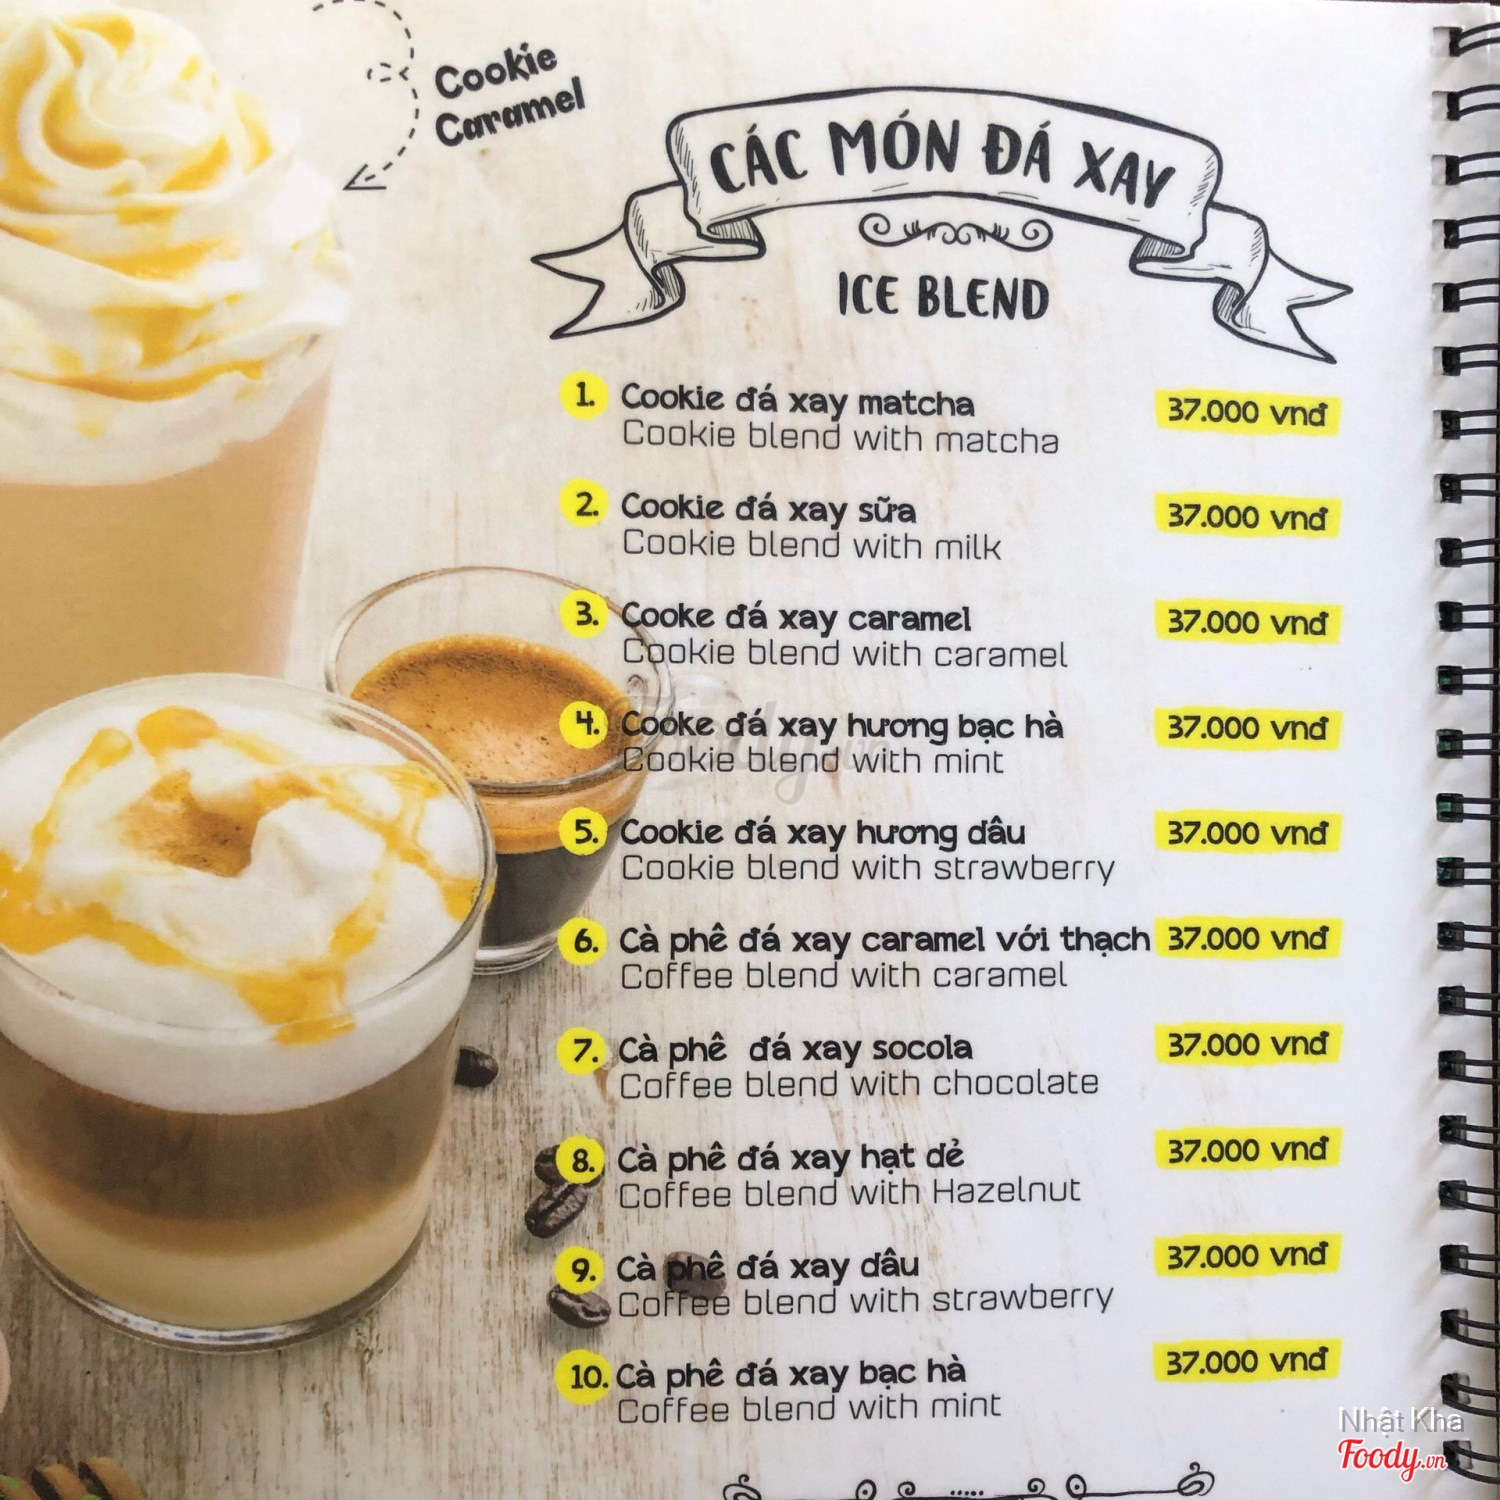 Cookie
Caramel
CÁC MÓN ĐÁ XAY
ICE BLEND
1. Cookie đá xay matcha 37.000 vnđ
Cookie blend with matcha
2. Cookie đá xay sữa 37.000 vnđ
Cookie blend with milk
3. Cooke đá xay caramel 37.000 vnđ
Cookie blend with caramel
4. Cooke đá xay hương bạc hà 37.000 vnđ
Cookie blend with mint
5. Cookie đá xay hương dâu 37.000 vnđ
Cookie blend with strawberry
6. Cà phê đá xay caramel với thạch 37.000 vnđ
Coffee blend with caramel
7. Cà phê đá xay socola 37.000 vnđ
Coffee blend with chocolate
8. Cà phê đá xay hạt dẻ 37.000 vnđ
Coffee blend with Hazelnut
9. Cà phê đá xay dâu 37.000 vnđ
Coffee blend with strawberry
10. Cà phê đá xay bạc hà 37.000 vnđ
Coffee blend with mint
Nhật Kha
Foody.vn